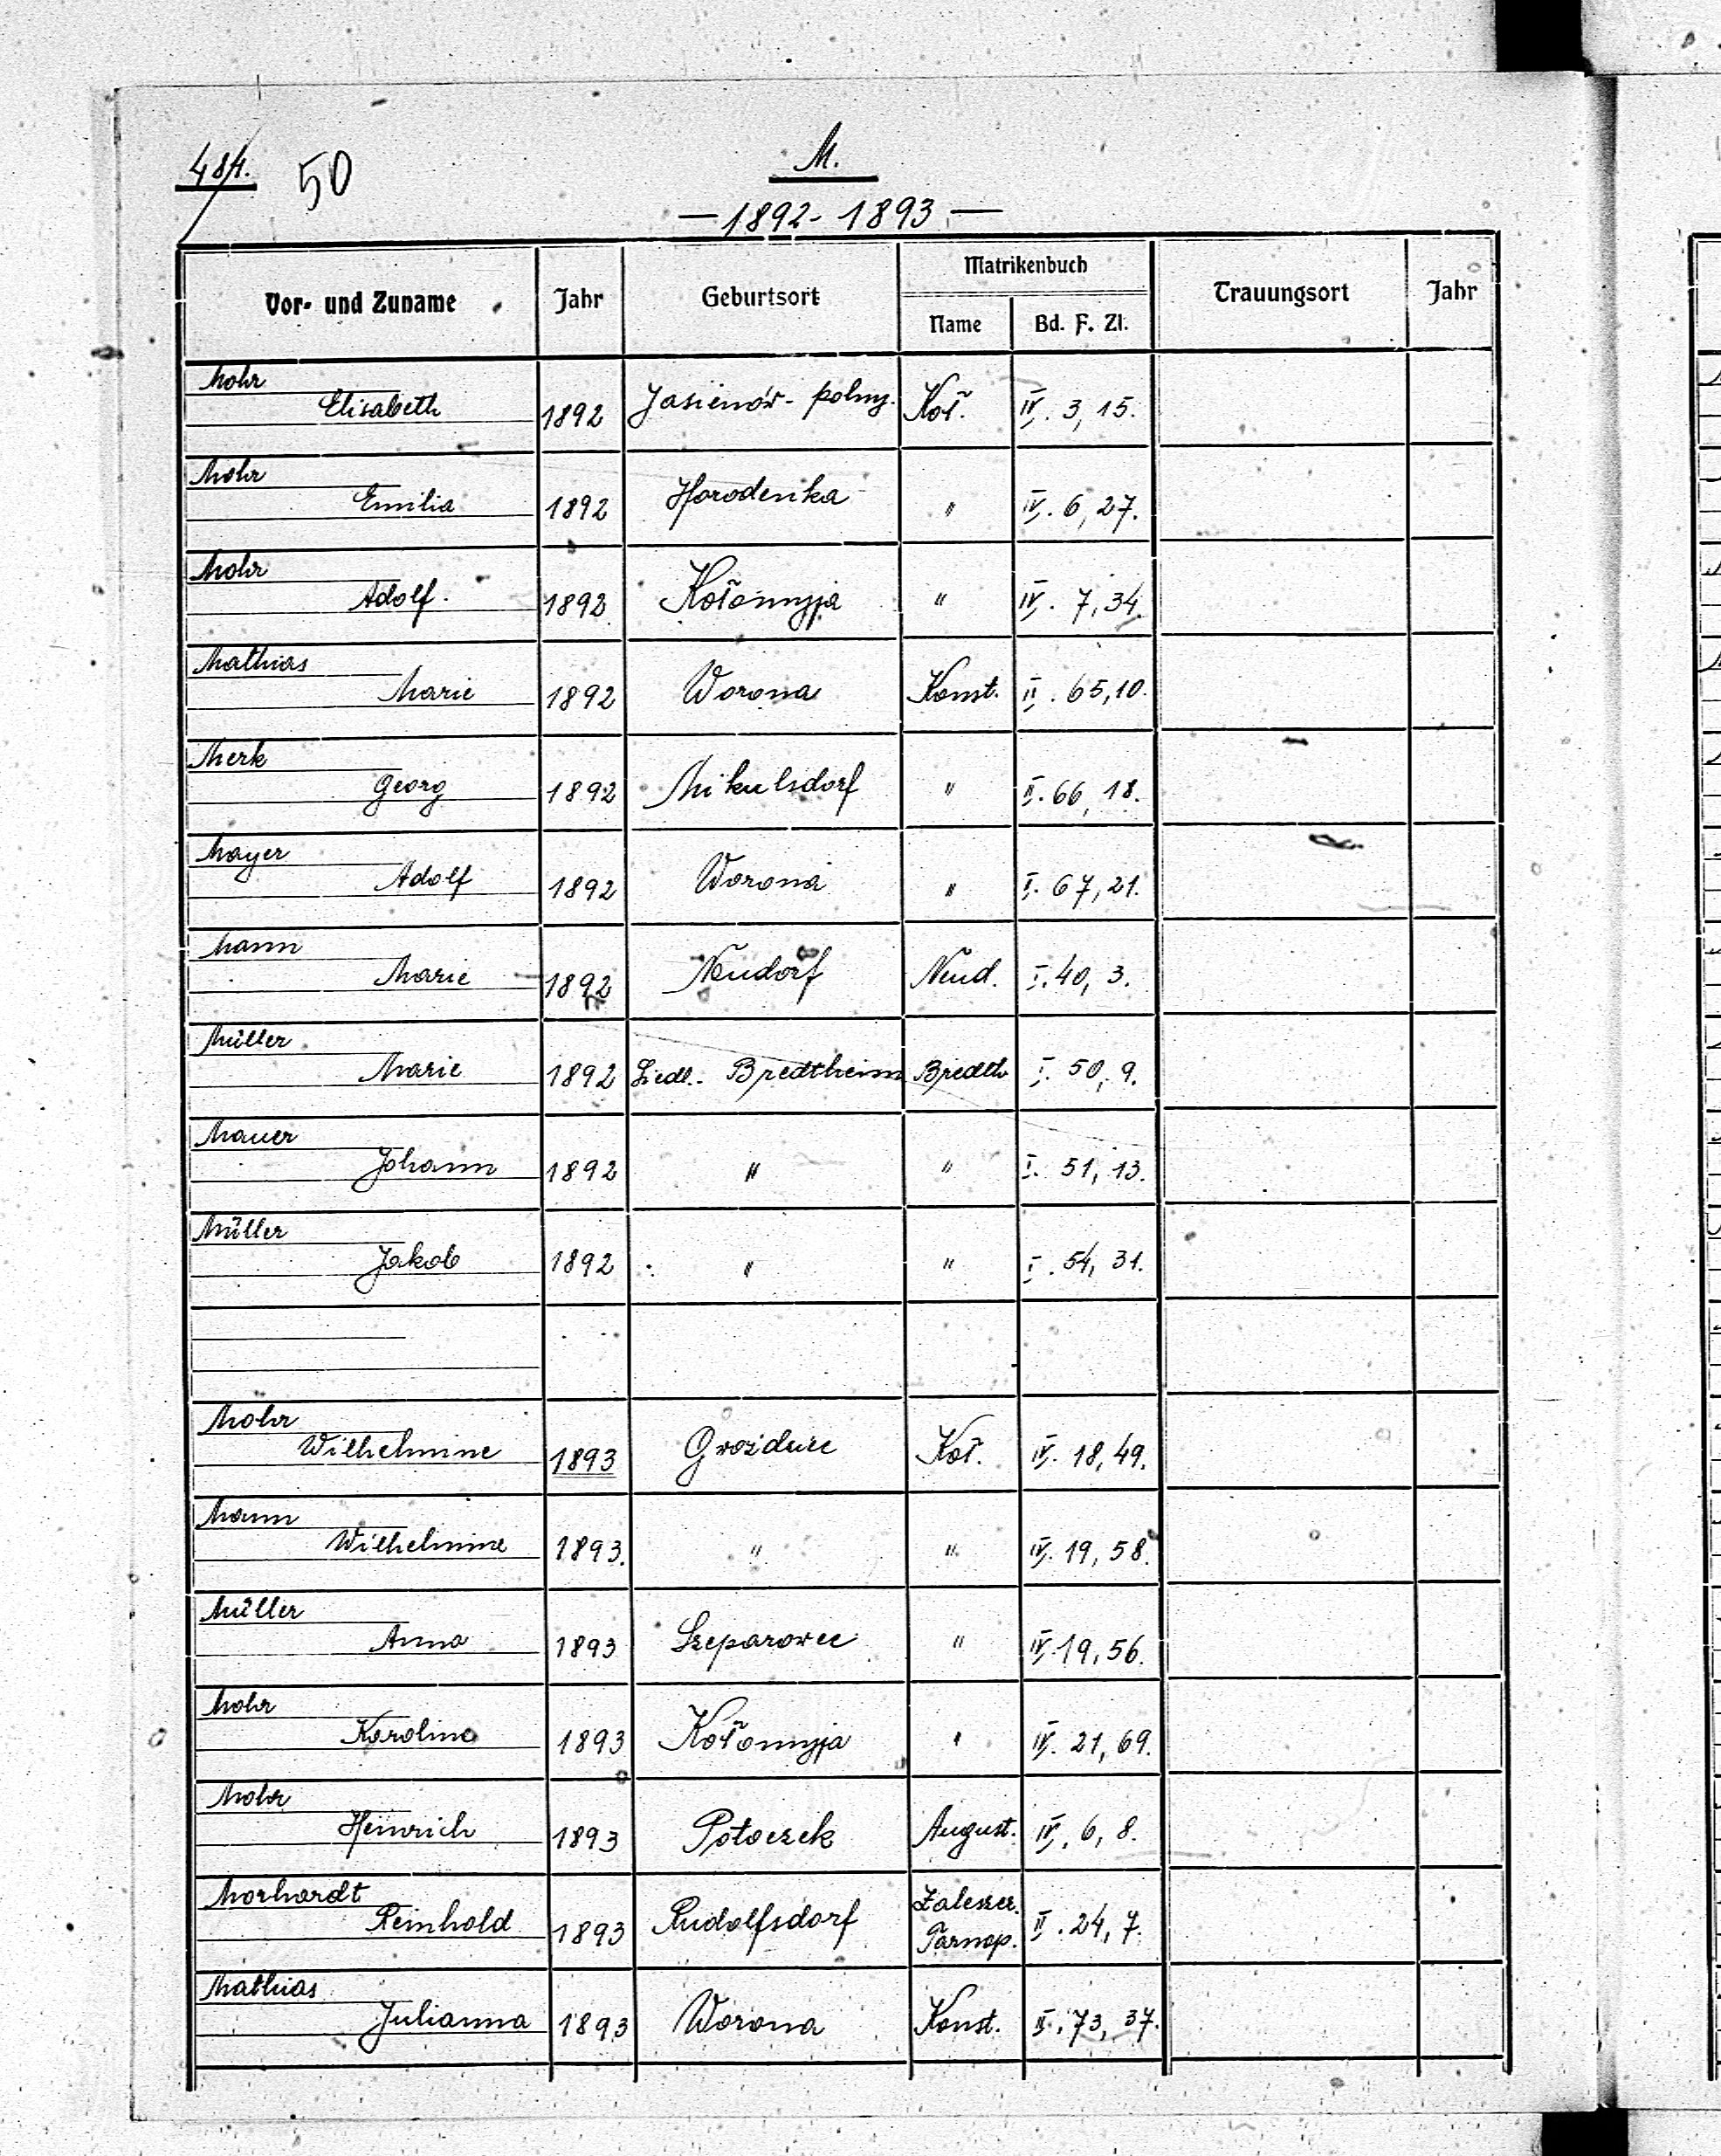 484. 50
M.
— 1892 - 1893 —
Vor- und Zuname Jahr Geburtsort Matrikenbuch Trauungsort Jahr
Name Bd. F. Zl.
Mohr
Elisabeth 1892 Jasienów-polny. Koł. IV. 3, 15.
Mohr
Emilia 1892 Horodenka " IV. 6, 27.
Mohr
Adolf. 1892 Kołomyja " IV. 7, 34.
Mathias
Marie 1892 Worona Konst. II. 65, 10.
Merk
Georg 1892 Mikulsdorf " II. 66, 18.
Mayer
Adolf 1892 Worona " I. 67, 21.
Mann
Marie 1892 Neudorf Neud. I. 40, 3.
Müller
Marie 1892 Siedl. Bredtheim Bredth I. 50, 9.
Mauer
Johann 1892 " " I. 51, 13.
Müller
Jakob 1892 " " I. 54, 31.
Mohr
Wilhelmine 1893 Gwoździec Koł. IV. 18, 49.
Mann
Wilhelmine 1893. " " IV. 19, 58.
Müller
Anna 1893 Szeparowce " IV. 19, 56.
Mohr
Karolina 1893 Kołomyja " IV. 21, 69.
Mohr
Heinrich 1893 Potoczek August. IV. 6, 8.
Morhardt Zaleszcz.
Reinhold 1893 Rudolfsdorf Tarnop. II. 24, 7.
Mathias
Julianna 1893 Worona Konst. II. 73, 37.